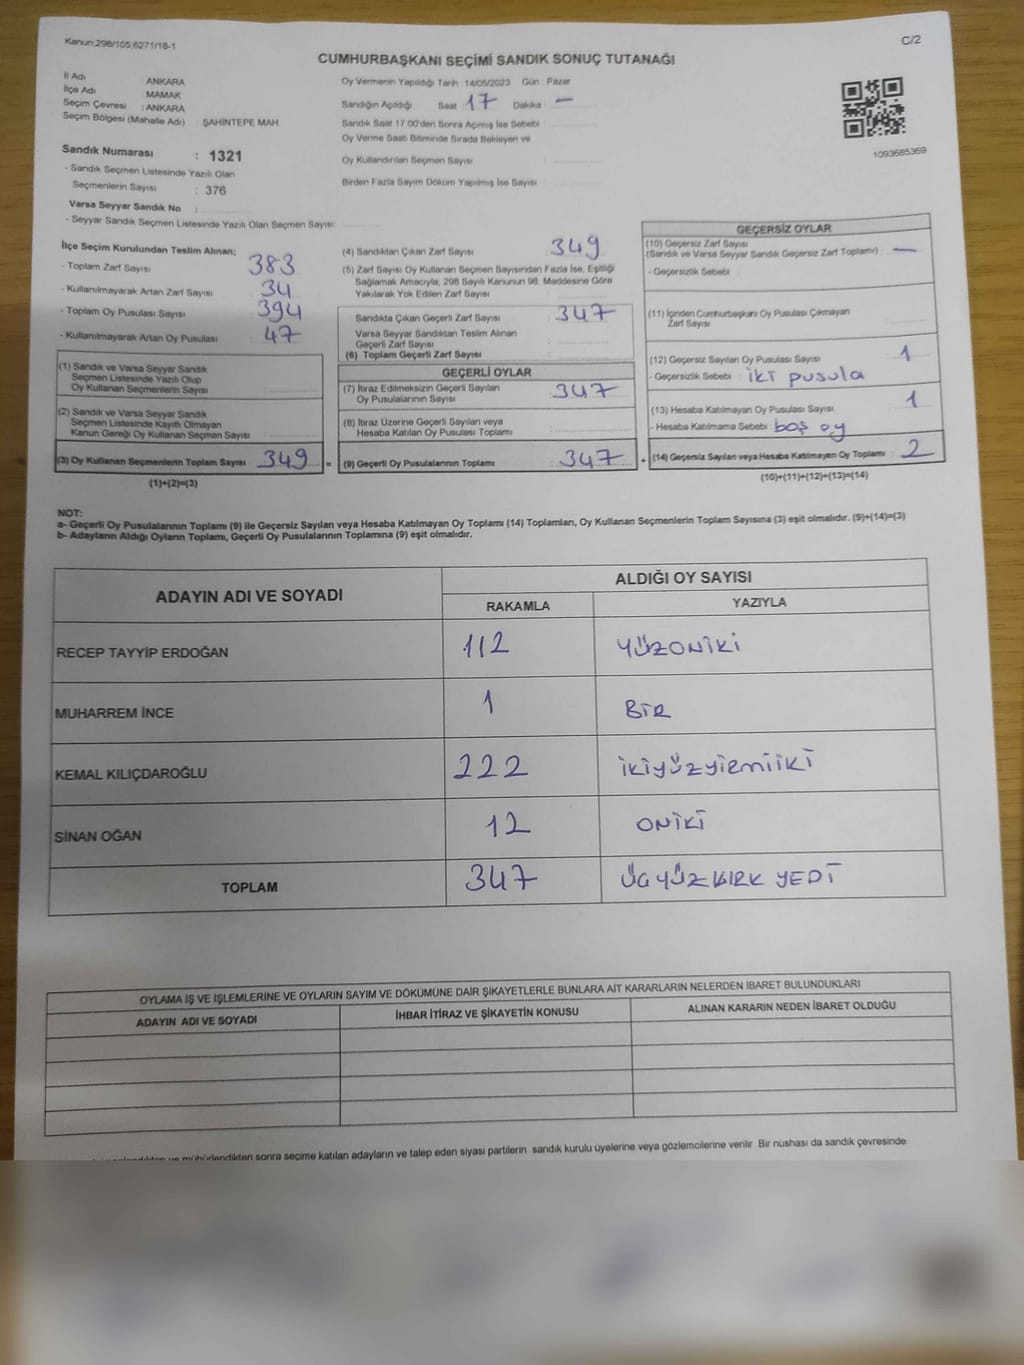 Kanun:298/105,6271/18-1
C/2
CUMHURBAŞKANI SEÇİMİ SANDIK SONUÇ TUTANAĞI
İl Adı ANKARA
İlçe Adı MAMAK
Seçim Çevresi : ANKARA
Seçim Bölgesi (Mahalle Adı) : ŞAHİNTEPE MAH
Sandık Numarası : 1321
- Sandık Seçmen Listesinde Yazılı Olan
Seçmenlerin Sayısı : 376
Varsa Seyyar Sandık No :
- Seyyar Sandık Seçmen Listesinde Yazılı Olan Seçmen Sayısı:
Oy Vermenin Yapıldığı Tarih : 14/05/2023 Gün : Pazar
Sandığın Açıldığı Saat : 17 Dakika : —
Sandık Saat 17:00'den Sonra Açılmış İse Sebebi :
Oy Verme Saati Bitiminde Sırada Bekleyen ve
Oy Kullandırılan Seçmen Sayısı :
Birden Fazla Sayım Döküm Yapılmış İse Sayısı :
1093685369
İlçe Seçim Kurulundan Teslim Alınan;
- Toplam Zarf Sayısı : 383
- Kullanılmayarak Artan Zarf Sayısı : 34
- Toplam Oy Pusulası Sayısı : 394
- Kullanılmayarak Artan Oy Pusulası : 47
(1) Sandık ve Varsa Seyyar Sandık
Seçmen Listesinde Yazılı Olup
Oy Kullanan Seçmenlerin Sayısı :
(2) Sandık ve Varsa Seyyar Sandık
Seçmen Listesinde Kayıtlı Olmayan
Kanun Gereği Oy Kullanan Seçmen Sayısı :
(3) Oy Kullanan Seçmenlerin Toplam Sayısı : 349 =
(1)+(2)=(3)
(4) Sandıktan Çıkan Zarf Sayısı : 349
(5) Zarf Sayısı Oy Kullanan Seçmen Sayısından Fazla İse, Eşitliği
Sağlamak Amacıyla, 298 Sayılı Kanunun 98. Maddesine Göre
Yakılarak Yok Edilen Zarf Sayısı :
Sandıkta Çıkan Geçerli Zarf Sayısı : 347
Varsa Seyyar Sandıktan Teslim Alınan
Geçerli Zarf Sayısı :
(6) Toplam Geçerli Zarf Sayısı :
GEÇERLİ OYLAR
(7) İtiraz Edilmeksizin Geçerli Sayılan
Oy Pusulalarının Sayısı : 347
(8) İtiraz Üzerine Geçerli Sayılan veya
Hesaba Katılan Oy Pusulası Toplamı :
(9) Geçerli Oy Pusulalarının Toplamı : 347 +
GEÇERSİZ OYLAR
(10) Geçersiz Zarf Sayısı
(Sandık ve Varsa Seyyar Sandık Geçersiz Zarf Toplamı) : —
- Geçersizlik Sebebi :
(11) İçinden Cumhurbaşkanı Oy Pusulası Çıkmayan
Zarf Sayısı
(12) Geçersiz Sayılan Oy Pusulası Sayısı : 1
- Geçersizlik Sebebi : iki pusula
(13) Hesaba Katılmayan Oy Pusulası Sayısı : 1
- Hesaba Katılmama Sebebi : boş oy
(14) Geçersiz Sayılan veya Hesaba Katılmayan Oy Toplamı : 2
(10)+(11)+(12)+(13)=(14)
NOT:
a- Geçerli Oy Pusulalarının Toplamı (9) ile Geçersiz Sayılan veya Hesaba Katılmayan Oy Toplamı (14) Toplamları, Oy Kullanan Seçmenlerin Toplam Sayısına (3) eşit olmalıdır. (9)+(14)=(3)
b- Adayların Aldığı Oyların Toplamı, Geçerli Oy Pusulalarının Toplamına (9) eşit olmalıdır.
ADAYIN ADI VE SOYADI
ALDIĞI OY SAYISI
RAKAMLA YAZIYLA
RECEP TAYYİP ERDOĞAN 112 YÜZONİKİ
MUHARREM İNCE 1 BİR
KEMAL KILIÇDAROĞLU 222 İKİYÜZYİRMİİKİ
SİNAN OĞAN 12 ONİKİ
TOPLAM 347 ÜÇYÜZKIRK YEDİ
OYLAMA İŞ VE İŞLEMLERİNE VE OYLARIN SAYIM VE DÖKÜMÜNE DAİR ŞİKAYETLERLE BUNLARA AİT KARARLARIN NELERDEN İBARET BULUNDUKLARI
ADAYIN ADI VE SOYADI İHBAR İTİRAZ VE ŞİKAYETİN KONUSU ALINAN KARARIN NEDEN İBARET OLDUĞU
mühürlendikten sonra seçime katılan adayların ve talep eden siyasi partilerin sandık kurulu üyelerine veya gözlemcilerine verilir Bir nüshası da sandık çevresinde